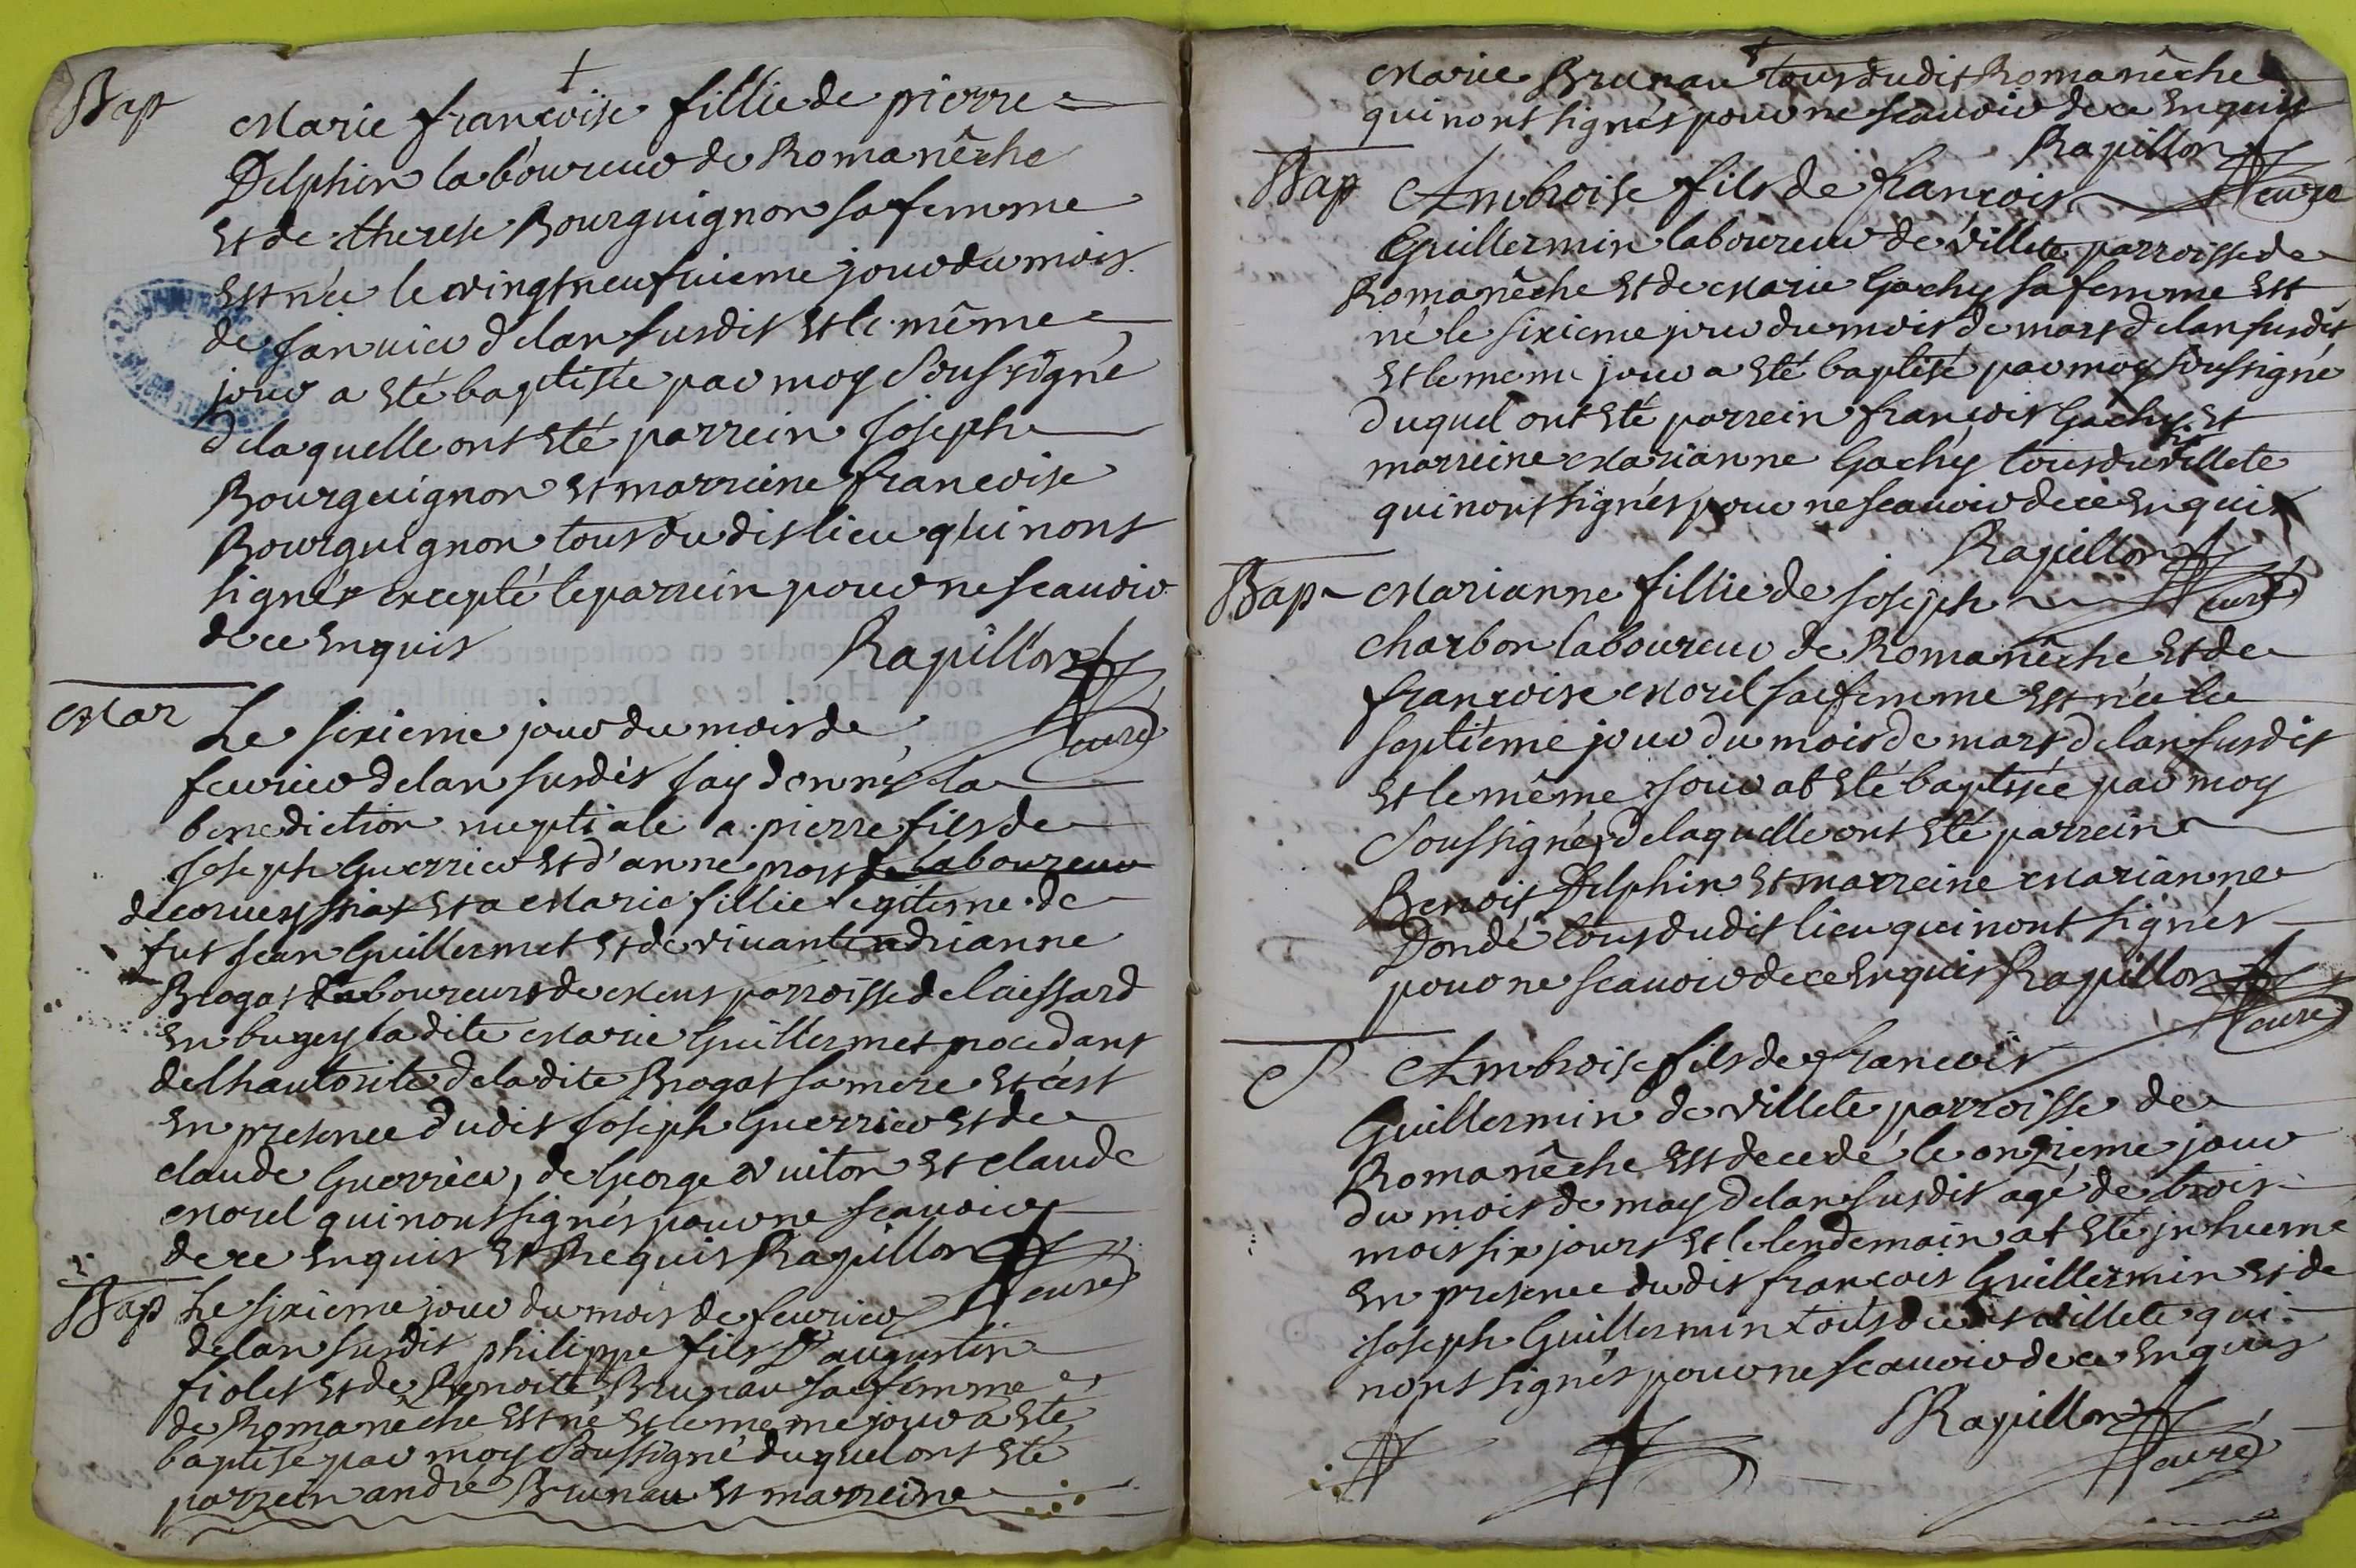 Bap
Marie françoise fillie de pierre
Delphin laboureur de Romanêche
Et de therese Bourguignon sa femme
Est née le vingtneufuieme jour du mois
de januier de lan susdit Et le même
jour a Eté baptisée par moy Soussigné
de laquelle ont Eté parrein joseph
Bourguignon Et marreine françoise
Bourguignon tous dudit lieu qui nont
signés excepté le parrein pour ne scauoir
de ce Enquis Rapillon
curé
Mar
Le sixieme jour du mois de
feurier de lan susdit jay donné la
benediction nuptiale a pierre fils de
joseph Guerrier Et d'anne laboureur
Et a Marie fillie legitime de
fut jean Guillermet Et de viuante adrianne
Brogat laboureurs de parroisse de
En bugey ladite Marie Guillermet procedant
de lhautorité de ladite Brogat sa mere Et cest
En presence dudit joseph Guerrier Et de
claude Guerrier, de George vuiton Et claude
Morel qui nont signés pour ne scauoir
de ce Enquis Et Requis Rapillon
curé
Bap
Le sixieme jour du mois de feurier
de lan susdit philippe fils D'augustin
fiolet Et de Benoite Brunau sa femme
de Romanêche Est né Et le même jour a Eté
baptisé par moy Soussigné duquel ont Eté
parrein andré Brunau Et marreine
Marie Brunau tous dudit Romanêche
qui nont signés pour ne scauoir de ce Enquis
Rapillon
curé
Bap
Ambroise fils de françois
Guillermin laboureur de villete parroisse de
Romanêche Et de Marie Gachy sa femme Est
né le sixieme jour du mois de mars de lan susdit
Et le meme jour a Eté baptisé par moy Soussigné
duquel ont Eté parrein françois Gachy Et
marreine Marianne Gachy tous du villete
qui nont signés pour ne scauoir de ce Enquis
Rapillon
curé
Bap
Marianne fillie de joseph
charbon laboureur de Romanêche Et de
françoise Morel sa femme Est née le
septiéme jour du mois de mars de lan susdit
Et le même jour at Eté baptisée par moy
Soussigné, de laquelle ont Eté parrein
Benoit Delphin Et marreine Marianne
Dondé tous dudit lieu qui nont signés
pour ne scauoir de ce Enquis Rapillon
curé
S
Ambroise fils de françois
Guillermin de villete parroisse de
Romanêche Est decedé le onzieme jour
du mois de may de lan susdit agé de trois
mois six jours Et le lendemain at Eté jnhumé
En presence dudit françois Guillermin Et de
joseph Guillermin tous dudit villete qui
nont signés pour ne scauoir de ce Enquis
Rapillon
curé